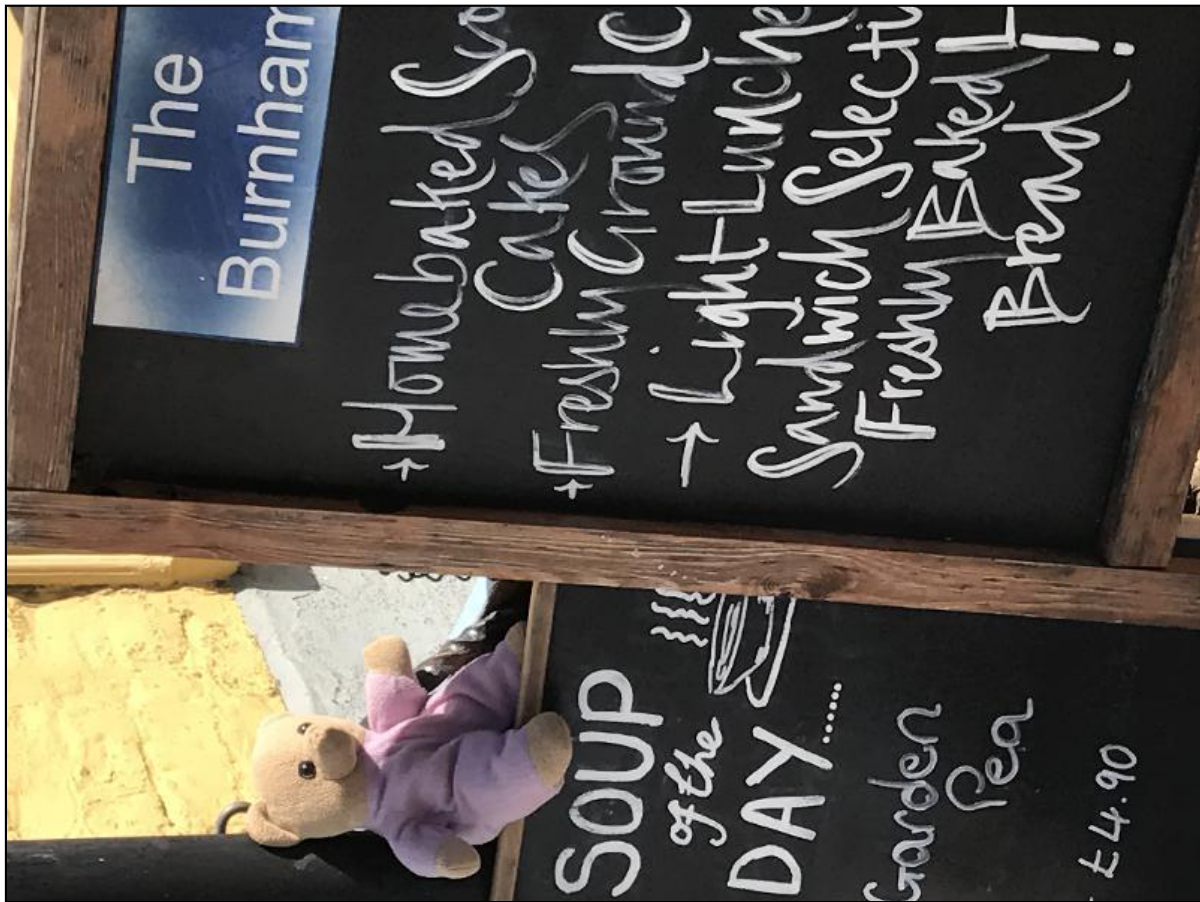 The
Burnham
→Homebaked
Cakes
→Freshly Ground
→ Light Lunche
Sandwich Selecti
Freshly Baked
Bread!
SOUP
of the
DAY......
Garden
Pea
£4.90